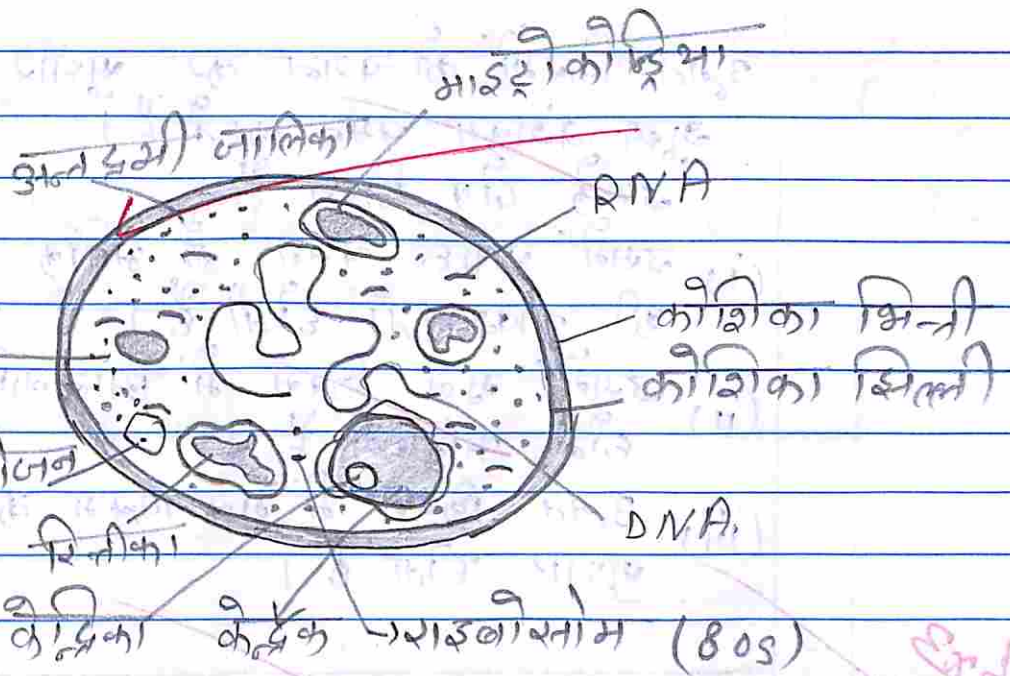 माइट्रोकोन्ड्रिया
अन्तद्रमी जालिका
RNA
कोशिका भित्ती
कोशिका झिल्ली
DNA.
रित्तीका
केन्द्रिका केन्द्रक →राइबोसोम (80S)